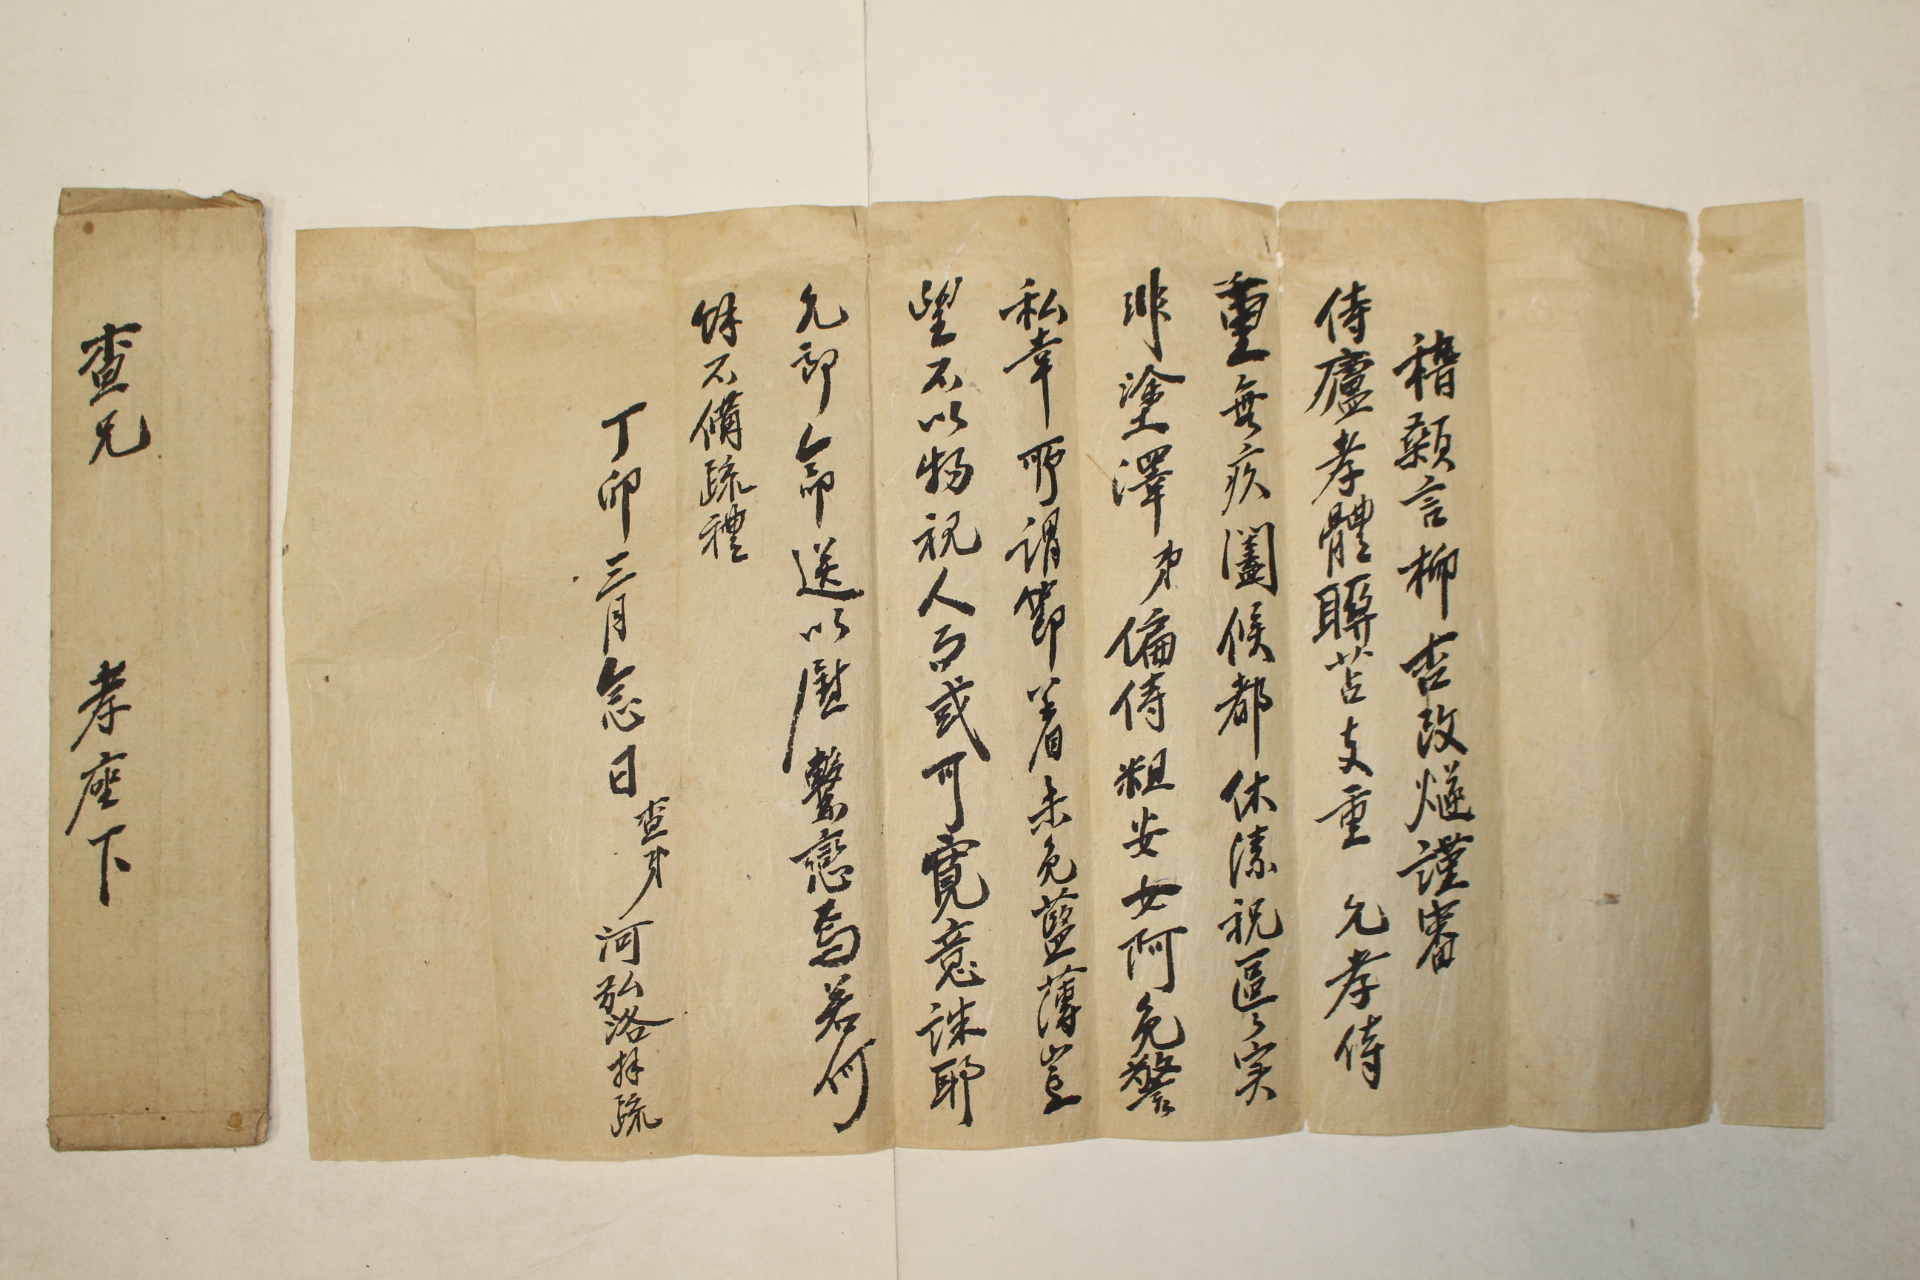 稽顙言柳杏改燧謹審
侍廬孝體聯苫支重 允孝侍
重無疚闔候都休溸祝區〻实
非塗澤弟偏侍粗安女阿免警
私幸所謂節着未免藍薄豈
望不以物視人而或可寬意諒耶
允郎命送以慰繫戀焉若何
餘不備疏禮
丁卯三月念日 査弟 河弘洛拜疏
査兄 孝座下